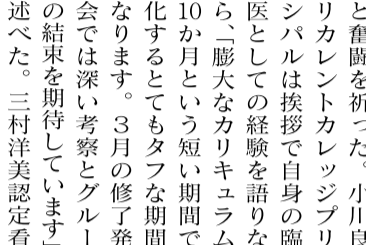 と奮闘を祈った。小川良
リカレントカレッジプリ
シパルは挨拶で自身の臨
医としての経験を語りな
ら、「膨大なカリキュラム
10か月という短い期間で
化するとてもタフな期間
なります。３月の修了発
会では深い考察とグルー
の結束を期待しています」
述べた。三村洋美認定看